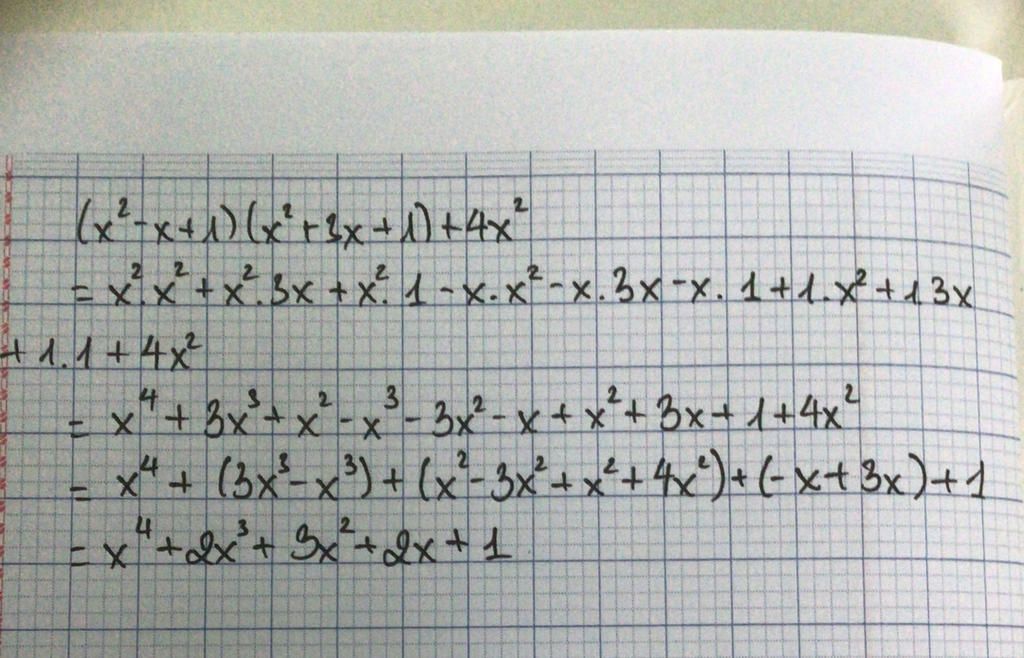 (x²-x+1)(x²+3x+1)+4x²
= x².x²+x².3x+x².1-x.x²-x.3x-x.1+1.x²+1 3x
+1.1+4x²
= x⁴+3x³+x²-x³-3x²-x+x²+3x+1+4x²
= x⁴+(3x³-x³)+(x²-3x²+x²+4x²)+(-x+3x)+1
= x⁴+2x³+3x²+2x+1